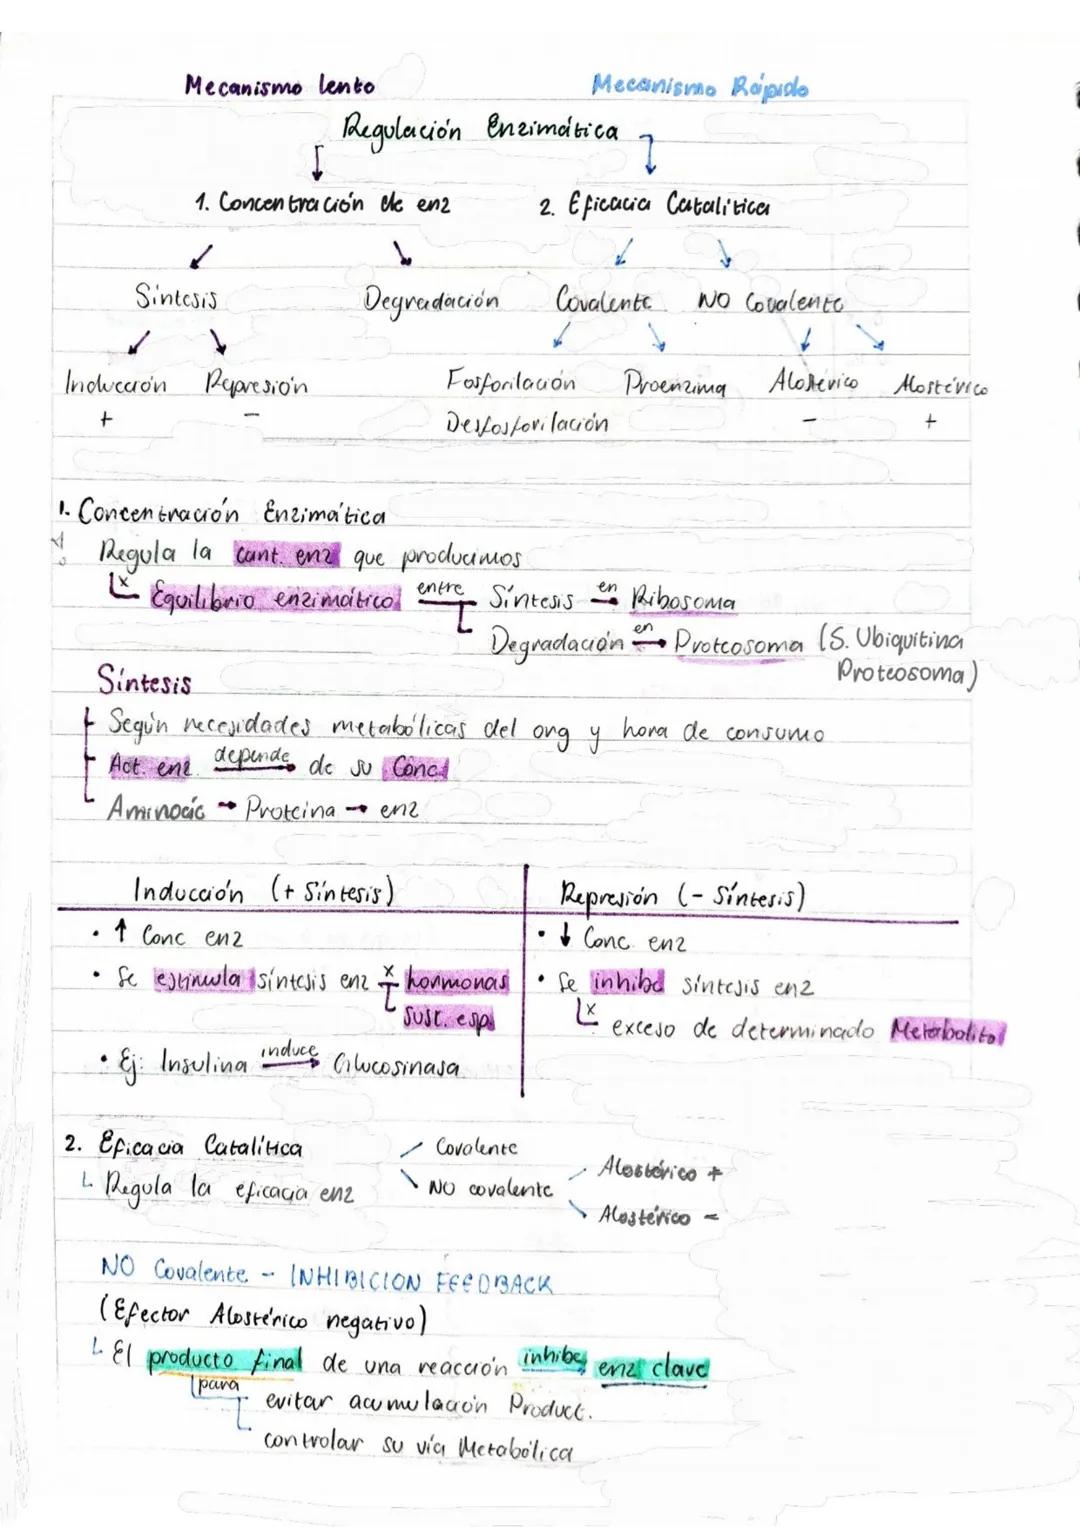 Mecanismo lento Mecanismo Rápido
Regulación Enzimática
1. Concentración de enz 2. Eficacia Catalítica
Síntesis Degradación Covalente NO Covalente
Inducción Represión Fosforilación Proenzima Alostérico Alostérico
+ - Desfosforilación - +
1. Concentración Enzimática
Regula la cant. enz que producimos
x Equilibrio enzimático entre Síntesis en Ribosoma
Degradación en Proteosoma (S. Ubiquitina
Proteosoma)
Síntesis
Según necesidades metabólicas del org y hora de consumo
Act. enz. depende de su Conc
Aminoác → Proteina → enz
Inducción (+ Síntesis) Represión (- Síntesis)
• ↑ Conc enz • ↓ Conc. enz
• Se estimula síntesis enz x hormonas • Se inhibe síntesis enz
sust. esp. x exceso de determinado Metabolito
• Ej: Insulina induce → Glucosinasa
2. Eficacia Catalítica Covalente
Regula la eficacia enz NO covalente Alostérico +
Alostérico -
NO Covalente - INHIBICION FEEDBACK
(Efector Alostérico negativo)
El producto final de una reacción inhibe enz clave
para evitar acumulación Product.
controlar su vía Metabólica